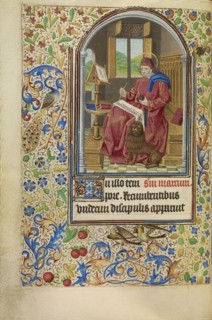 In illo tem Sm marcum
pore. Recumbentibus
undecim discipulis apparuit